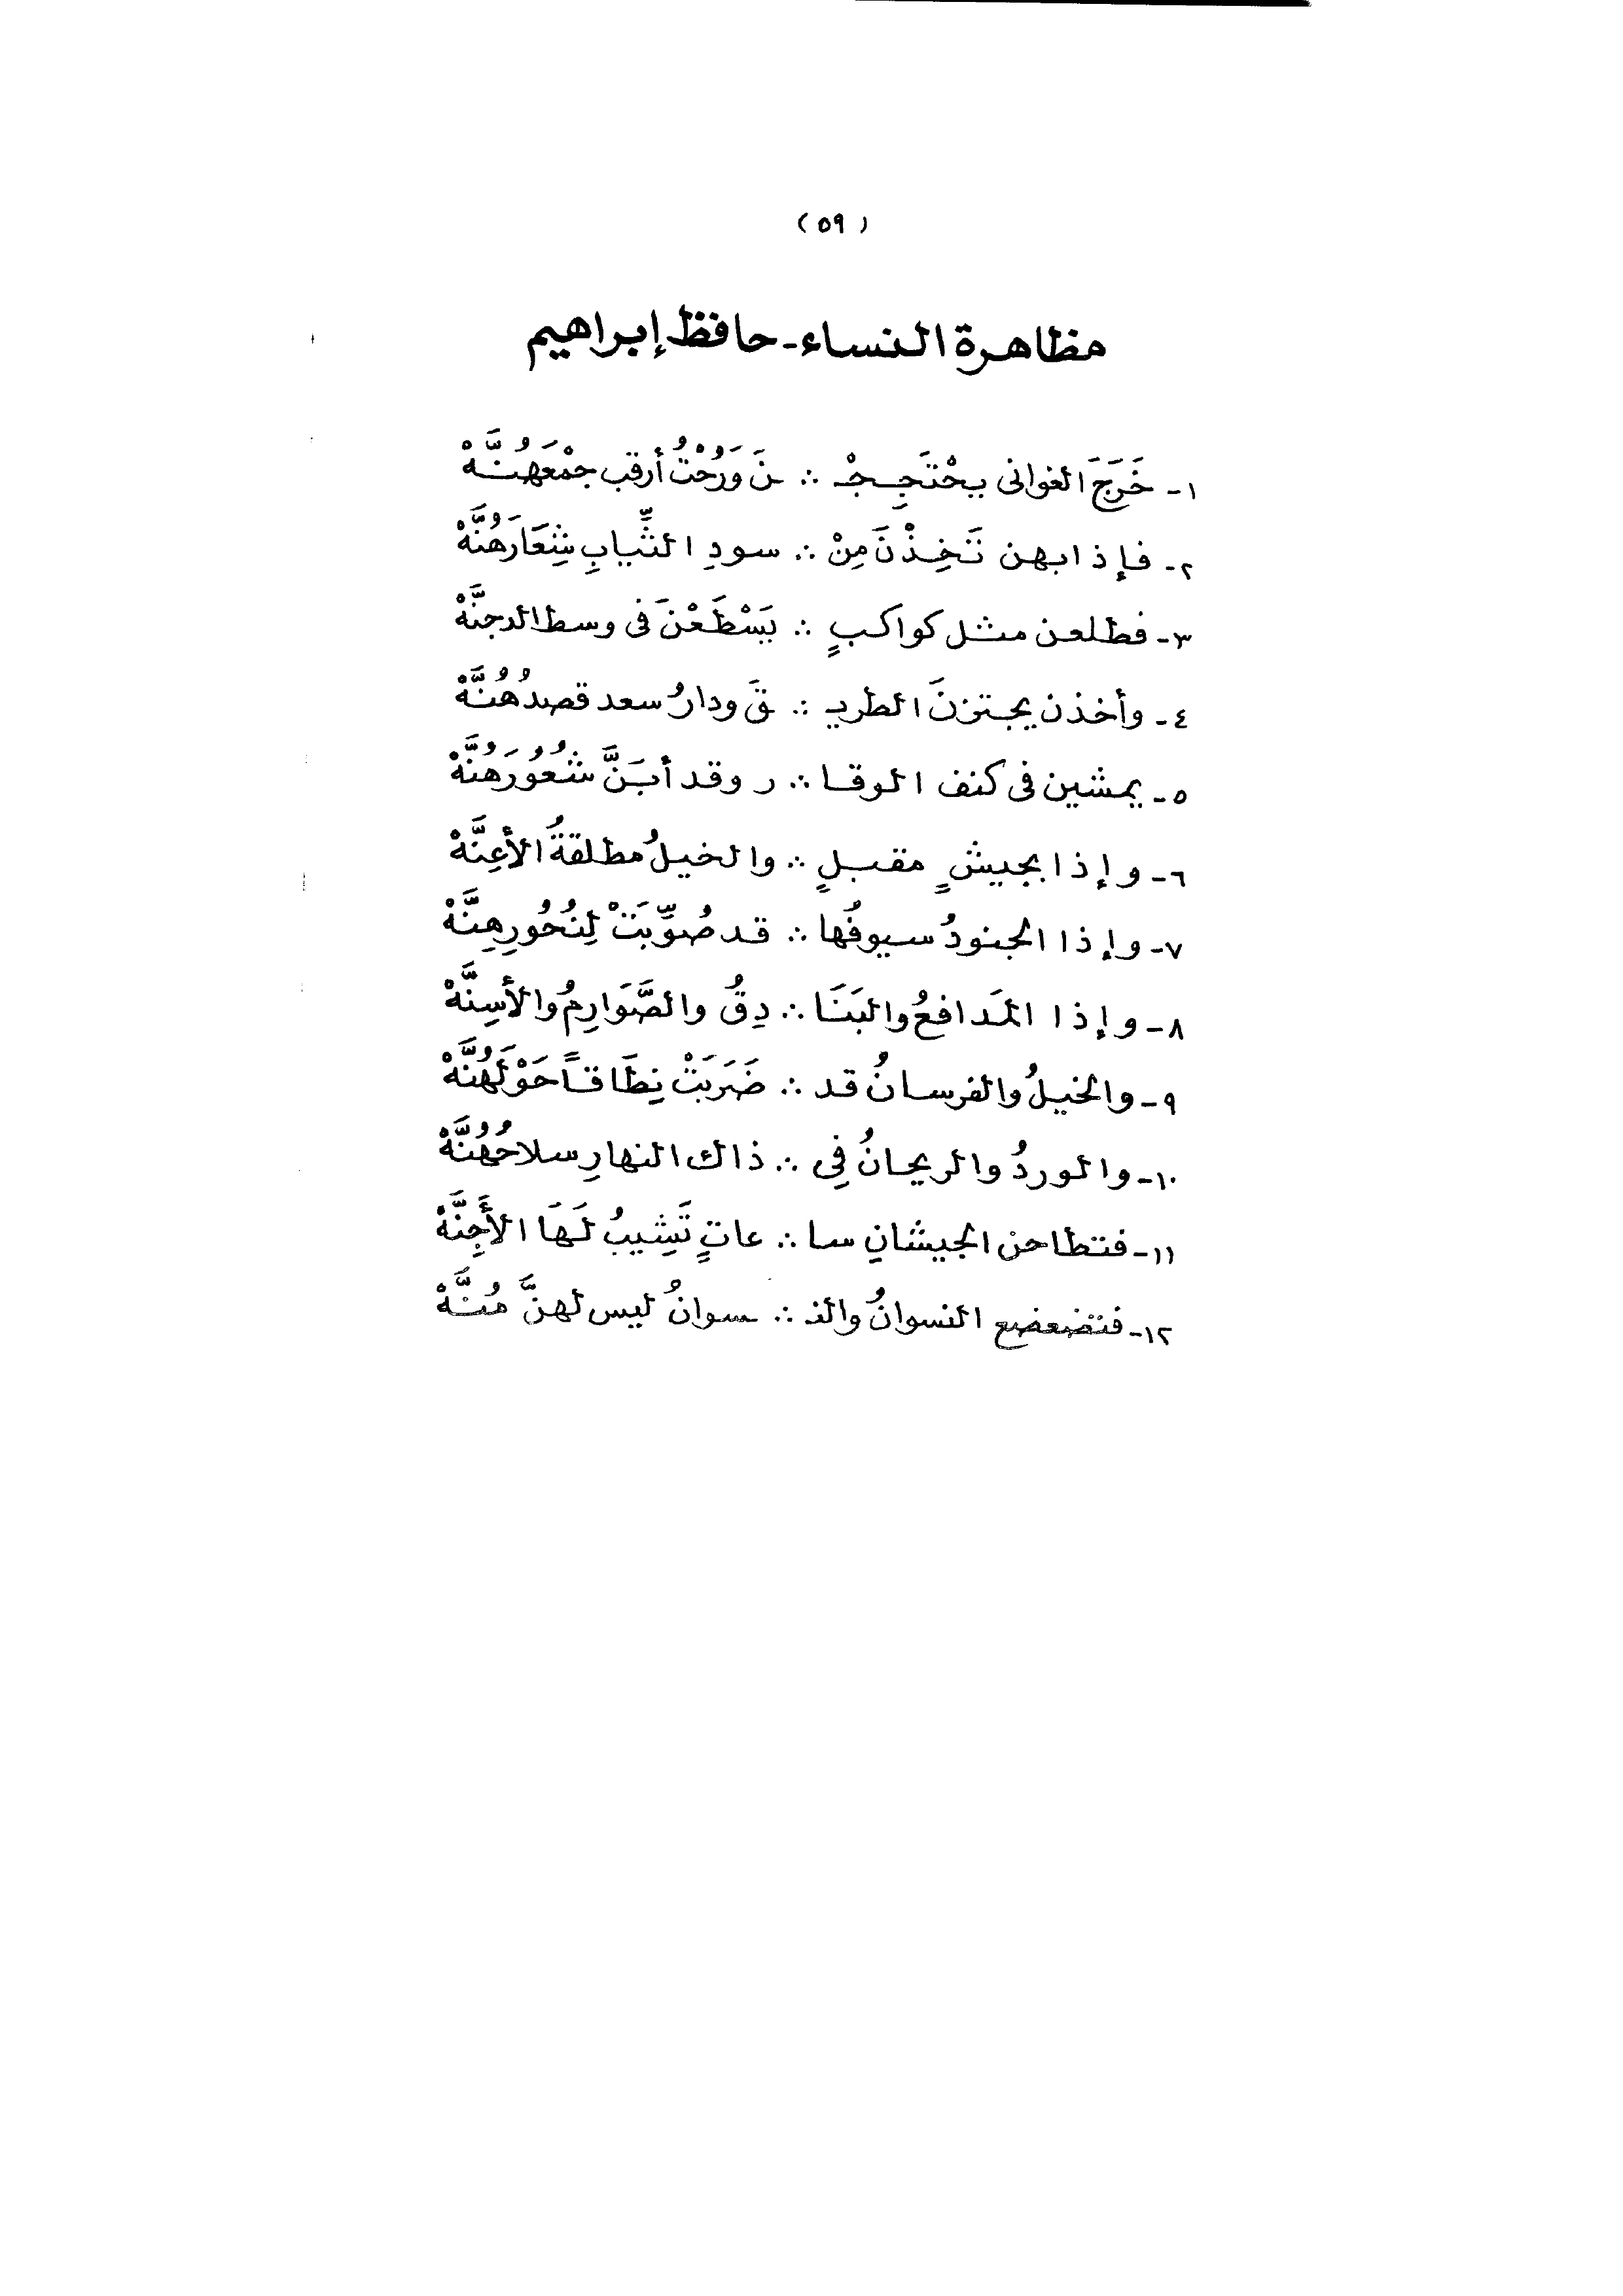 ( ٥٩ )
مظاهرة النساء - حافظ إبراهيم
١- خَرَجَ الغوانى يحْتَجِجْـ ∴ ـنَ وَرُحْتُ أرقب جمْعَهُنَّهْ
٢- فإذا بهن تَخِذْنَ مِنْ ∴ سودِ الثِّيابِ شِعَارَهُنَّهْ
٣- فطلعن مثل كواكبٍ ∴ يَسْطَعْنَ فى وسط الدجنَّهْ
٤- وأخذن يجتزنَ الطريـ ∴ ـقَ ودارُ سعد قصدُهُنَّهْ
٥- يمشين فى كنف الوقا ∴ ر وقد أبَنَّ شُعُورَهُنَّهْ
٦- وإذا بجيشٍ مقبلٍ ∴ والخيلُ مطلقةُ الأعِنَّهْ
٧- وإذا الجنودُ سيوفُها ∴ قد صُوِّبَتْ لِنُحُورِهِنَّهْ
٨- وإذا المَدافعُ والبَنَا ∴ دِقُ والصَّوَارِمُ والأسِنَّهْ
٩- والخيلُ والفرسانُ قد ∴ ضَرَبَتْ نِطَاقاً حَوْلَهُنَّهْ
١٠- والوردُ والريحانُ فِى ∴ ذاك النهارِ سلاحُهُنَّهْ
١١- فتطاحن الجيشانِ سا ∴ عاتٍ تَشِيبُ لَهَا الأَجِنَّهْ
١٢- فتضعضع النسوانُ والنـ ∴ ـسوانُ ليس لهنَّ مُنَّهْ